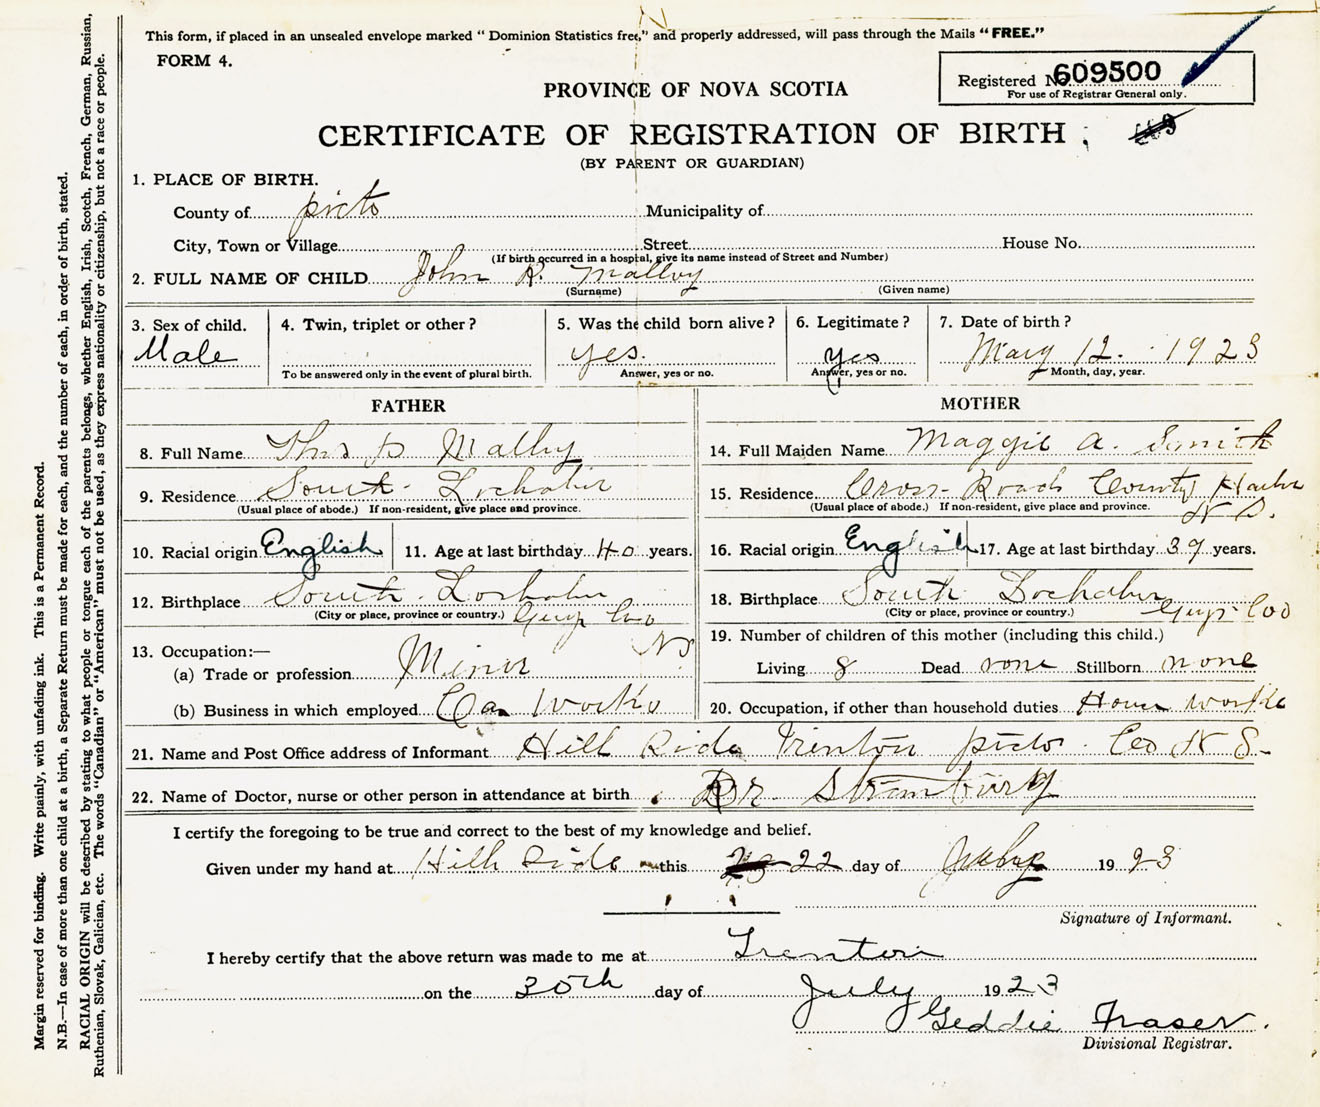 This form, if placed in an unsealed envelope marked “ Dominion Statistics free,” and properly addressed, will pass through the Mails “ FREE.”
FORM 4.
Registered No. 609500
For use of Registrar General only.
PROVINCE OF NOVA SCOTIA
CERTIFICATE OF REGISTRATION OF BIRTH
(BY PARENT OR GUARDIAN)
1. PLACE OF BIRTH.
County of picto Municipality of
City, Town or Village Street House No.
(If birth occurred in a hospital, give its name instead of Street and Number)
2. FULL NAME OF CHILD John R. Malloy
(Surname) (Given name)
3. Sex of child. 4. Twin, triplet or other ? 5. Was the child born alive ? 6. Legitimate ? 7. Date of birth ?
Male yes. yes May 12. 1923
To be answered only in the event of plural birth. Answer, yes or no. Answer, yes or no. Month, day, year.
FATHER MOTHER
8. Full Name Thos D Malloy 14. Full Maiden Name Maggie A. Smith
9. Residence South Lochaber 15. Residence Cross Roads County Harbor
(Usual place of abode.) If non-resident, give place and province. (Usual place of abode.) If non-resident, give place and province.
N S.
10. Racial origin English 11. Age at last birthday 40 years. 16. Racial origin English 17. Age at last birthday 39 years.
12. Birthplace South Lochaber 18. Birthplace South Lochaber
(City or place, province or country.) Guys Co (City or place, province or country.) Guys Co
N S
13. Occupation:— 19. Number of children of this mother (including this child.)
(a) Trade or profession Miner Living 8 Dead none Stillborn none
(b) Business in which employed Car Works 20. Occupation, if other than household duties House
21. Name and Post Office address of Informant Hill Side Trenton picto Co N S
22. Name of Doctor, nurse or other person in attendance at birth Dr
I certify the foregoing to be true and correct to the best of my knowledge and belief.
Given under my hand at Hill Side this 22 day of 1923
Signature of Informant.
I hereby certify that the above return was made to me at Trenton
on the 30th day of July 1923
Geddie Fraser.
Divisional Registrar.
Margin reserved for binding. Write plainly, with unfading ink. This is a Permanent Record.
N.B.—In case of more than one child at a birth, a Separate Return must be made for each, and the number of each, in order of birth, stated.
RACIAL ORIGIN will be described by stating to what people or tongue each of the parents belongs, whether English, Irish, Scotch, French, German, Russian,
Ruthenian, Slovak, Galician, etc. The words “Canadian” or “American” must not be used, as they express nationality or citizenship, but not a race or people.